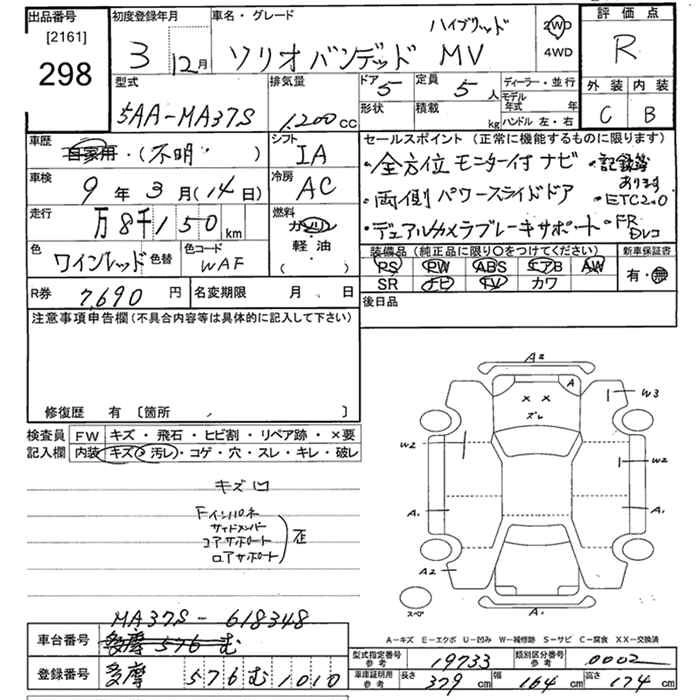 出品番号 初度登録年月 車名・グレード 評価点
[2161] 3 12月 ソリオ バンデッド ハイブリッド MV 2WD 4WD R
298
型式 排気量 ドア 5 定員 5人 ディーラー・並行 外装 内装
5AA-MA37S 1,200cc 形状 積載 kg モデル年式 年 C B
ハンドル 左・右
車歴 自家用・(不明) シフト IA セールスポイント (正常に機能するものに限ります)
車検 9年3月(14日) 冷房 AC ・全方位 モニター付 ナビ ・記録簿あります
・両側 パワースライドドア ・ETC2.0
走行 万8千150km 燃料 ガソリン 軽油 ( ) ・デュアルカメラブレーキサポート ・FR Dレコ
色 ワインレッド 色替 色コード WAF 装備品 (純正品に限り○をつけてください) 新車保証書
PS PW ABS エアB AW 有・無
SR ナビ TV カワ
R券 7,690円 名変期限 月 日 後日品
注意事項申告欄(不具合内容等は具体的に記入して下さい)
修復歴 有 [箇所 ]
検査員 FW キズ・飛石・ヒビ割・リペア跡・×要
記入欄 内装 キズ・汚レ・コゲ・穴・スレ・キレ・破レ
キズ凹
Fインパネ
サイドメンバー
コアサポート
ロアサポート
歪
A2
A
× ×
ズレ
W3
W2
W2
A1
A1
A2
スペア
A1
A-キズ E-エクボ U-凹み W-補修跡 S-サビ C-腐食 XX-交換済
MA37S-618348
車台番号 多摩 576 む
登録番号 多摩 576 む 1010
型式指定番号 参考 19733 類別区分番号 参考 0002
車庫証明用 参考 長さ 379cm 幅 164cm 高さ 174cm